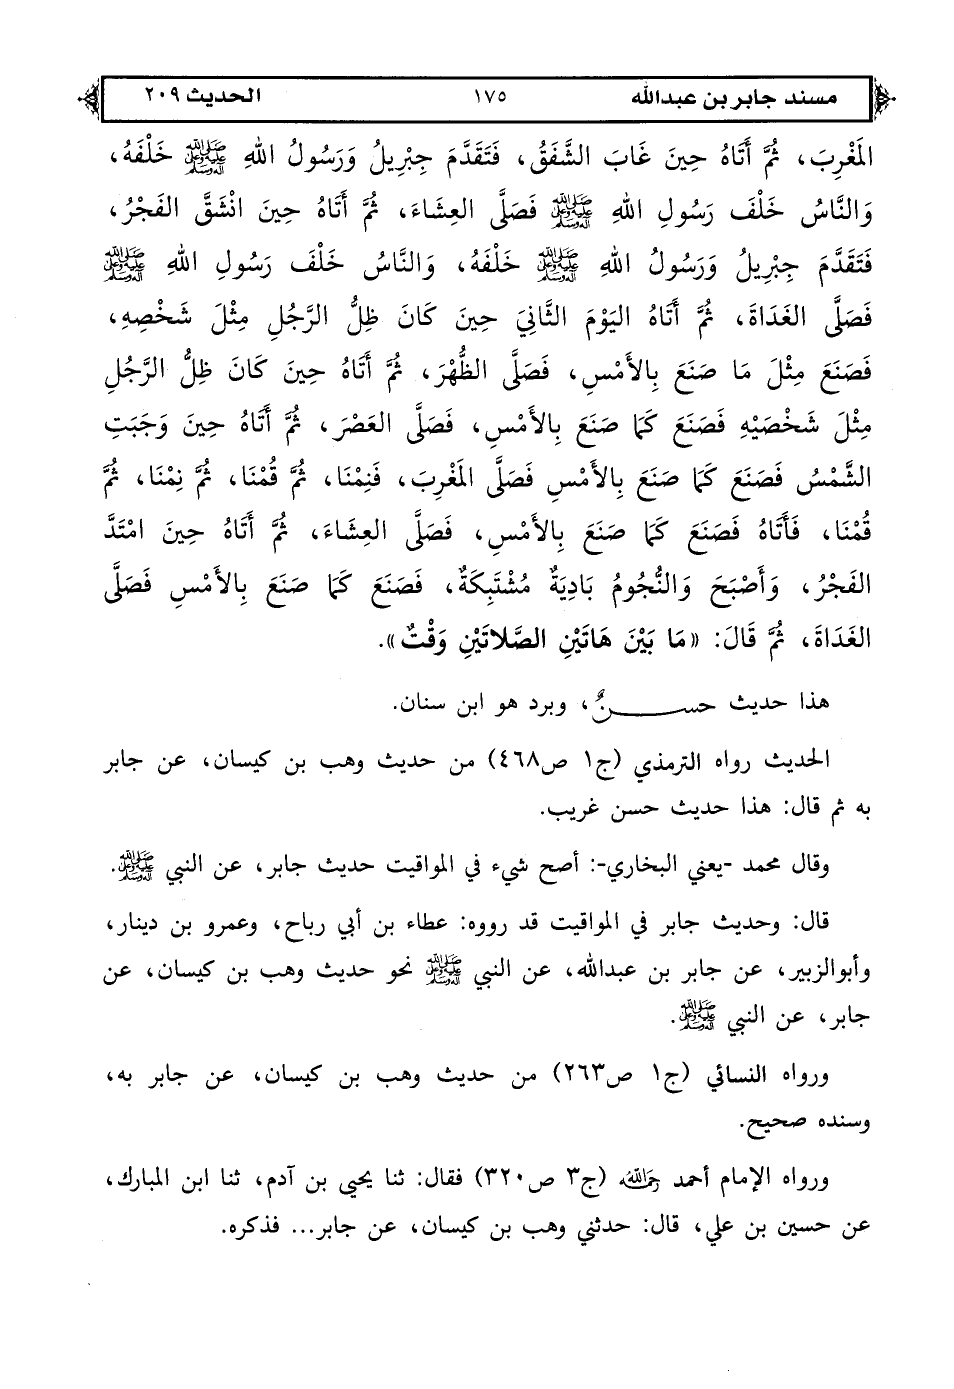 مسند جابر بن عبدالله ١٧٥ الحديث ٢٠٩
المَغْرِبَ، ثُمَّ أَتَاهُ حِينَ غَابَ الشَّفَقُ، فَتَقَدَّمَ جِبْرِيلُ وَرَسُولُ اللهِ ﷺ خَلْفَهُ،
وَالنَّاسُ خَلْفَ رَسُولِ اللهِ ﷺ فَصَلَّى العِشَاءَ، ثُمَّ أَتَاهُ حِينَ انْشَقَّ الفَجْرُ،
فَتَقَدَّمَ جِبْرِيلُ وَرَسُولُ اللهِ ﷺ خَلْفَهُ، وَالنَّاسُ خَلْفَ رَسُولِ اللهِ ﷺ
فَصَلَّى الغَدَاةَ، ثُمَّ أَتَاهُ اليَوْمَ الثَّانِيَ حِينَ كَانَ ظِلُّ الرَّجُلِ مِثْلَ شَخْصِهِ،
فَصَنَعَ مِثْلَ مَا صَنَعَ بِالأَمْسِ، فَصَلَّى الظُّهْرَ، ثُمَّ أَتَاهُ حِينَ كَانَ ظِلُّ الرَّجُلِ
مِثْلَ شَخْصَيْهِ فَصَنَعَ كَمَا صَنَعَ بِالأَمْسِ، فَصَلَّى العَصْرَ، ثُمَّ أَتَاهُ حِينَ وَجَبَتِ
الشَّمْسُ فَصَنَعَ كَمَا صَنَعَ بِالأَمْسِ فَصَلَّى المَغْرِبَ، فَنِمْنَا، ثُمَّ قُمْنَا، ثُمَّ نِمْنَا، ثُمَّ
قُمْنَا، فَأَتَاهُ فَصَنَعَ كَمَا صَنَعَ بِالأَمْسِ، فَصَلَّى العِشَاءَ، ثُمَّ أَتَاهُ حِينَ امْتَدَّ
الفَجْرُ، وَأَصْبَحَ وَالنُّجُومُ بَادِيَةٌ مُشْتَبِكَةٌ، فَصَنَعَ كَمَا صَنَعَ بِالأَمْسِ فَصَلَّى
الغَدَاةَ، ثُمَّ قَالَ: «مَا بَيْنَ هَاتَيْنِ الصَّلاتَيْنِ وَقْتٌ».
هذا حديث حســـــنٌ، وبرد هو ابن سنان.
الحديث رواه الترمذي (ج١ ص٤٦٨) من حديث وهب بن كيسان، عن جابر
به ثم قال: هذا حديث حسن غريب.
وقال محمد -يعني البخاري-: أصح شيء في المواقيت حديث جابر، عن النبي ﷺ.
قال: وحديث جابر في المواقيت قد رووه: عطاء بن أبي رباح، وعمرو بن دينار،
وأبوالزبير، عن جابر بن عبدالله، عن النبي ﷺ نحو حديث وهب بن كيسان، عن
جابر، عن النبي ﷺ.
ورواه النسائي (ج١ ص٢٦٣) من حديث وهب بن كيسان، عن جابر به،
وسنده صحيح.
ورواه الإمام أحمد رحمه الله (ج٣ ص٣٢٠) فقال: ثنا يحيى بن آدم، ثنا ابن المبارك،
عن حسين بن علي، قال: حدثني وهب بن كيسان، عن جابر... فذكره.